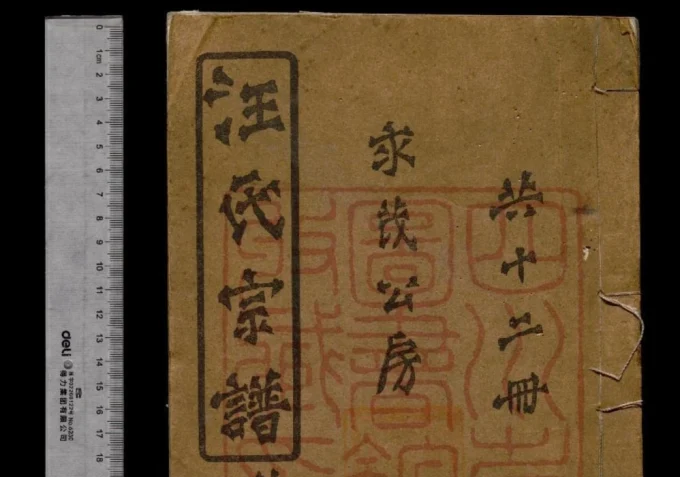 共十二冊
永茂公房
汪氏宗譜
圖書館
deli
得力集团有限公司
0 1cm 2 3 4 5 6 7 8 9 10 11 12 13 14 15 16 17 18